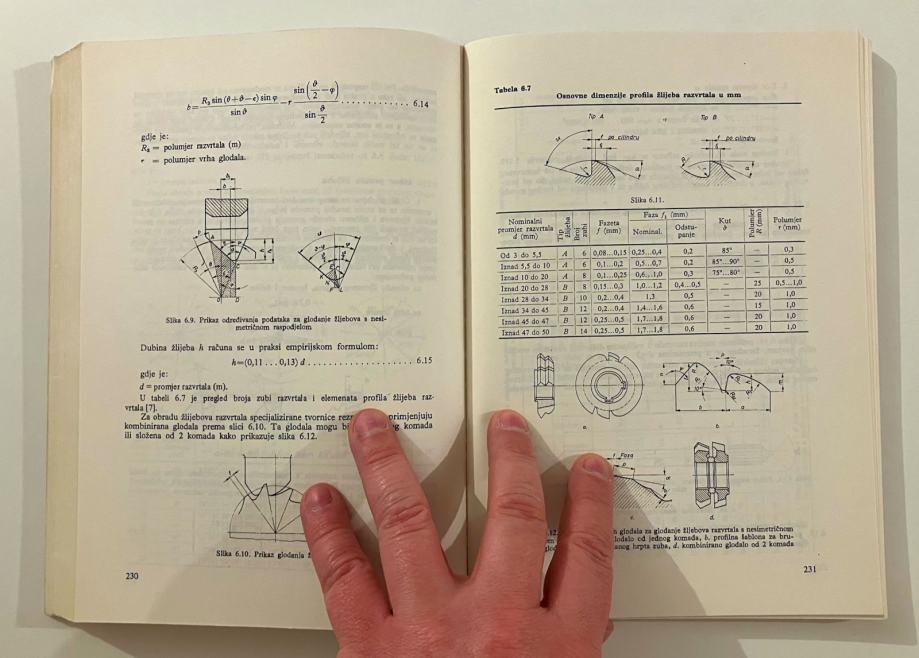 b = R₂ sin (θ+ϑ−ε) sin φ / sin ϑ − r sin (ϑ/2 − φ) / sin ϑ/2 . . . . . . . . . . . 6.14
gdje je:
R₂ = polumjer razvrtala (m)
r = polumjer vrha glodala.
Slika 6.9. Prikaz određivanja podataka za glodanje žlijebova s nesi-
metričnom raspodjelom
Dubina žlijeba h računa se u praksi empirijskom formulom:
h=(0,11 . . . 0,13) d . . . . . . . . . . . . . . . . . . . 6.15
gdje je:
d = promjer razvrtala (m).
U tabeli 6.7 je pregled broja zubi razvrtala i elemenata profila žlijeba raz-
vrtala [7].
Za obradu žlijebova razvrtala specijalizirane tvornice primjenjuju
kombinirana glodala prema slici 6.10. Ta glodala mogu komada
ili složena od 2 komada kako prikazuje slika 6.12.
Slika 6.10. Prikaz glodanja
230
Tabela 6.7
Osnovne dimenzije profila žlijeba razvrtala u mm
Tip A Tip B
f po cilindru f po cilindru
Slika 6.11.
Nominalni promjer razvrtala d (mm) Tip žlijeba Broj zubi Fazeta f (mm) Faza f₁ (mm) Nominal. Odstupanje Kut ϑ Polumjer R (mm) Polumjer r (mm)
Od 3 do 5,5 A 6 0,08...0,15 0,25...0,4 0,2 85° — 0,3
Iznad 5,5 do 10 A 6 0,1...0,2 0,5...0,7 0,2 85°...90° — 0,5
Iznad 10 do 20 A 8 0,1...0,25 0,6...1,0 0,3 75°...80° — 0,5
Iznad 20 do 28 B 8 0,15...0,3 1,0...1,2 0,4...0,5 — 25 0,5...1,0
Iznad 28 do 34 B 10 0,2...0,4 1,3 0,5 — 20 1,0
Iznad 34 do 45 B 12 0,2...0,4 1,4...1,6 0,6 — 15 1,0
Iznad 45 do 47 B 12 0,25...0,5 1,7...1,8 0,6 — 20 1,0
Iznad 47 do 50 B 14 0,25...0,5 1,7...1,8 0,6 — 20 1,0
a. b.
f Faza
c. d.
glodala za glodanje žlijebova razvrtala s nesimetričnom
glodalo od jednog komada, b. profilna šablona za bru-
hrpta zuba, d. kombinirano glodalo od 2 komada
231